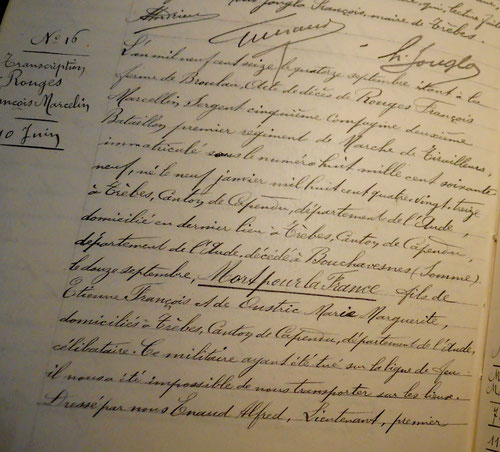 François, maire de Trèbes.
N° 16
Transcription
Rouges
François Marcelin
10 Juin
L'an mil neuf cent seize le quatorze septembre étant à la
ferme de Acte de décès de Rouges François
Marcellin Sergent cinquième Compagnie deuxième
Bataillon premier régiment de Marche de Tirailleurs,
immatriculé sous le numéro huit mille cent soixante
neuf, né le neuf janvier mil huit cent quatre-vingt-treize
à Trèbes, Canton de Capendu, département de l'Aude,
domicilié en dernier lieu à Trèbes, Canton de Capendu,
département de l'Aude, décédé à Bouchavesnes (Somme).
le douze septembre, Mort pour la France fils de
Etienne François et de Oustric Marie Marguerite,
domiciliés à Trèbes, Canton de Capendu, département de l'Aude,
célibataire. Ce militaire ayant été tué sur la ligne de feu
il nous a été impossible de nous transporter sur les lieux.
Dressé par nous Enaud Alfred, Lieutenant, premier